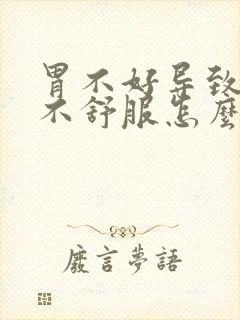 胃不好导致
不舒服怎麼
廢言夢語